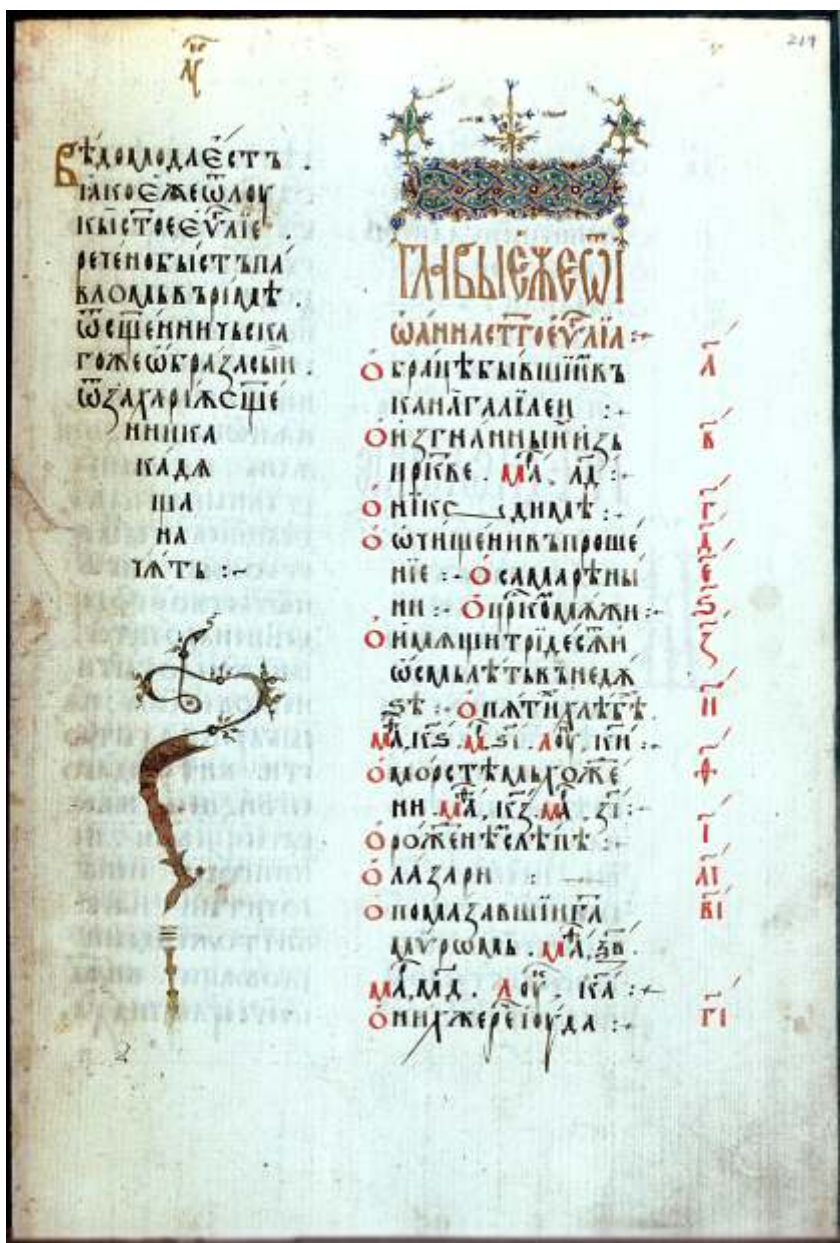 219
Вѣдомодаєстъ .
ꙗкоєжеѿлоу
кыст҃оеєѵⷢ҇лїе
реченобыстъпа
вломьвъримѣ .
ѿсщ҃енничьска
гожеѡбразасыи :
ѿзахарїѫсщ҃е
нника
кадѧ
ша
на
чѧтъ :~
главыєжеѿі
ѡаннаст҃гоеѵⷢ҇лїа :~
обрацѣбывшїимⷩ҇въ
канагалїлеи :~ а҃
оизгнанныйизь
цр҃кве . Мⷬ҇а . лд : в҃
оникодимѣ :~ г҃
оѡчищениивъпроше д҃
нїе :~ осамарѣны е҃
ни :~ опрⷪ҇комѫжи :~ ѕ҃
оимѫщитрїдесѧти з҃
ѡсмьлѣтьвънедѫ
ѕѣ :~ опѧтихлѣбѣ и҃
Мⷴ҇а, к҃ѕ . Мⷬ҇ . ѕ҃і . Лоуⷦ҇ . ки :~
оморстѣмьхоже ѳ҃
ни . Мⷴ҇а . к҃з Мⷬ҇а . з҃і :~
ороженѣслѣпѣ :~ і҃
олазари : аі҃
опомазавшиига҃ ві҃
мѵромь . Мⷴ҇а, ѯ҃в .
Мⷬ҇а, м҃д . Лоуⷦ҇ . к҃а :~
онихжеречеіоуда :~ гі҃